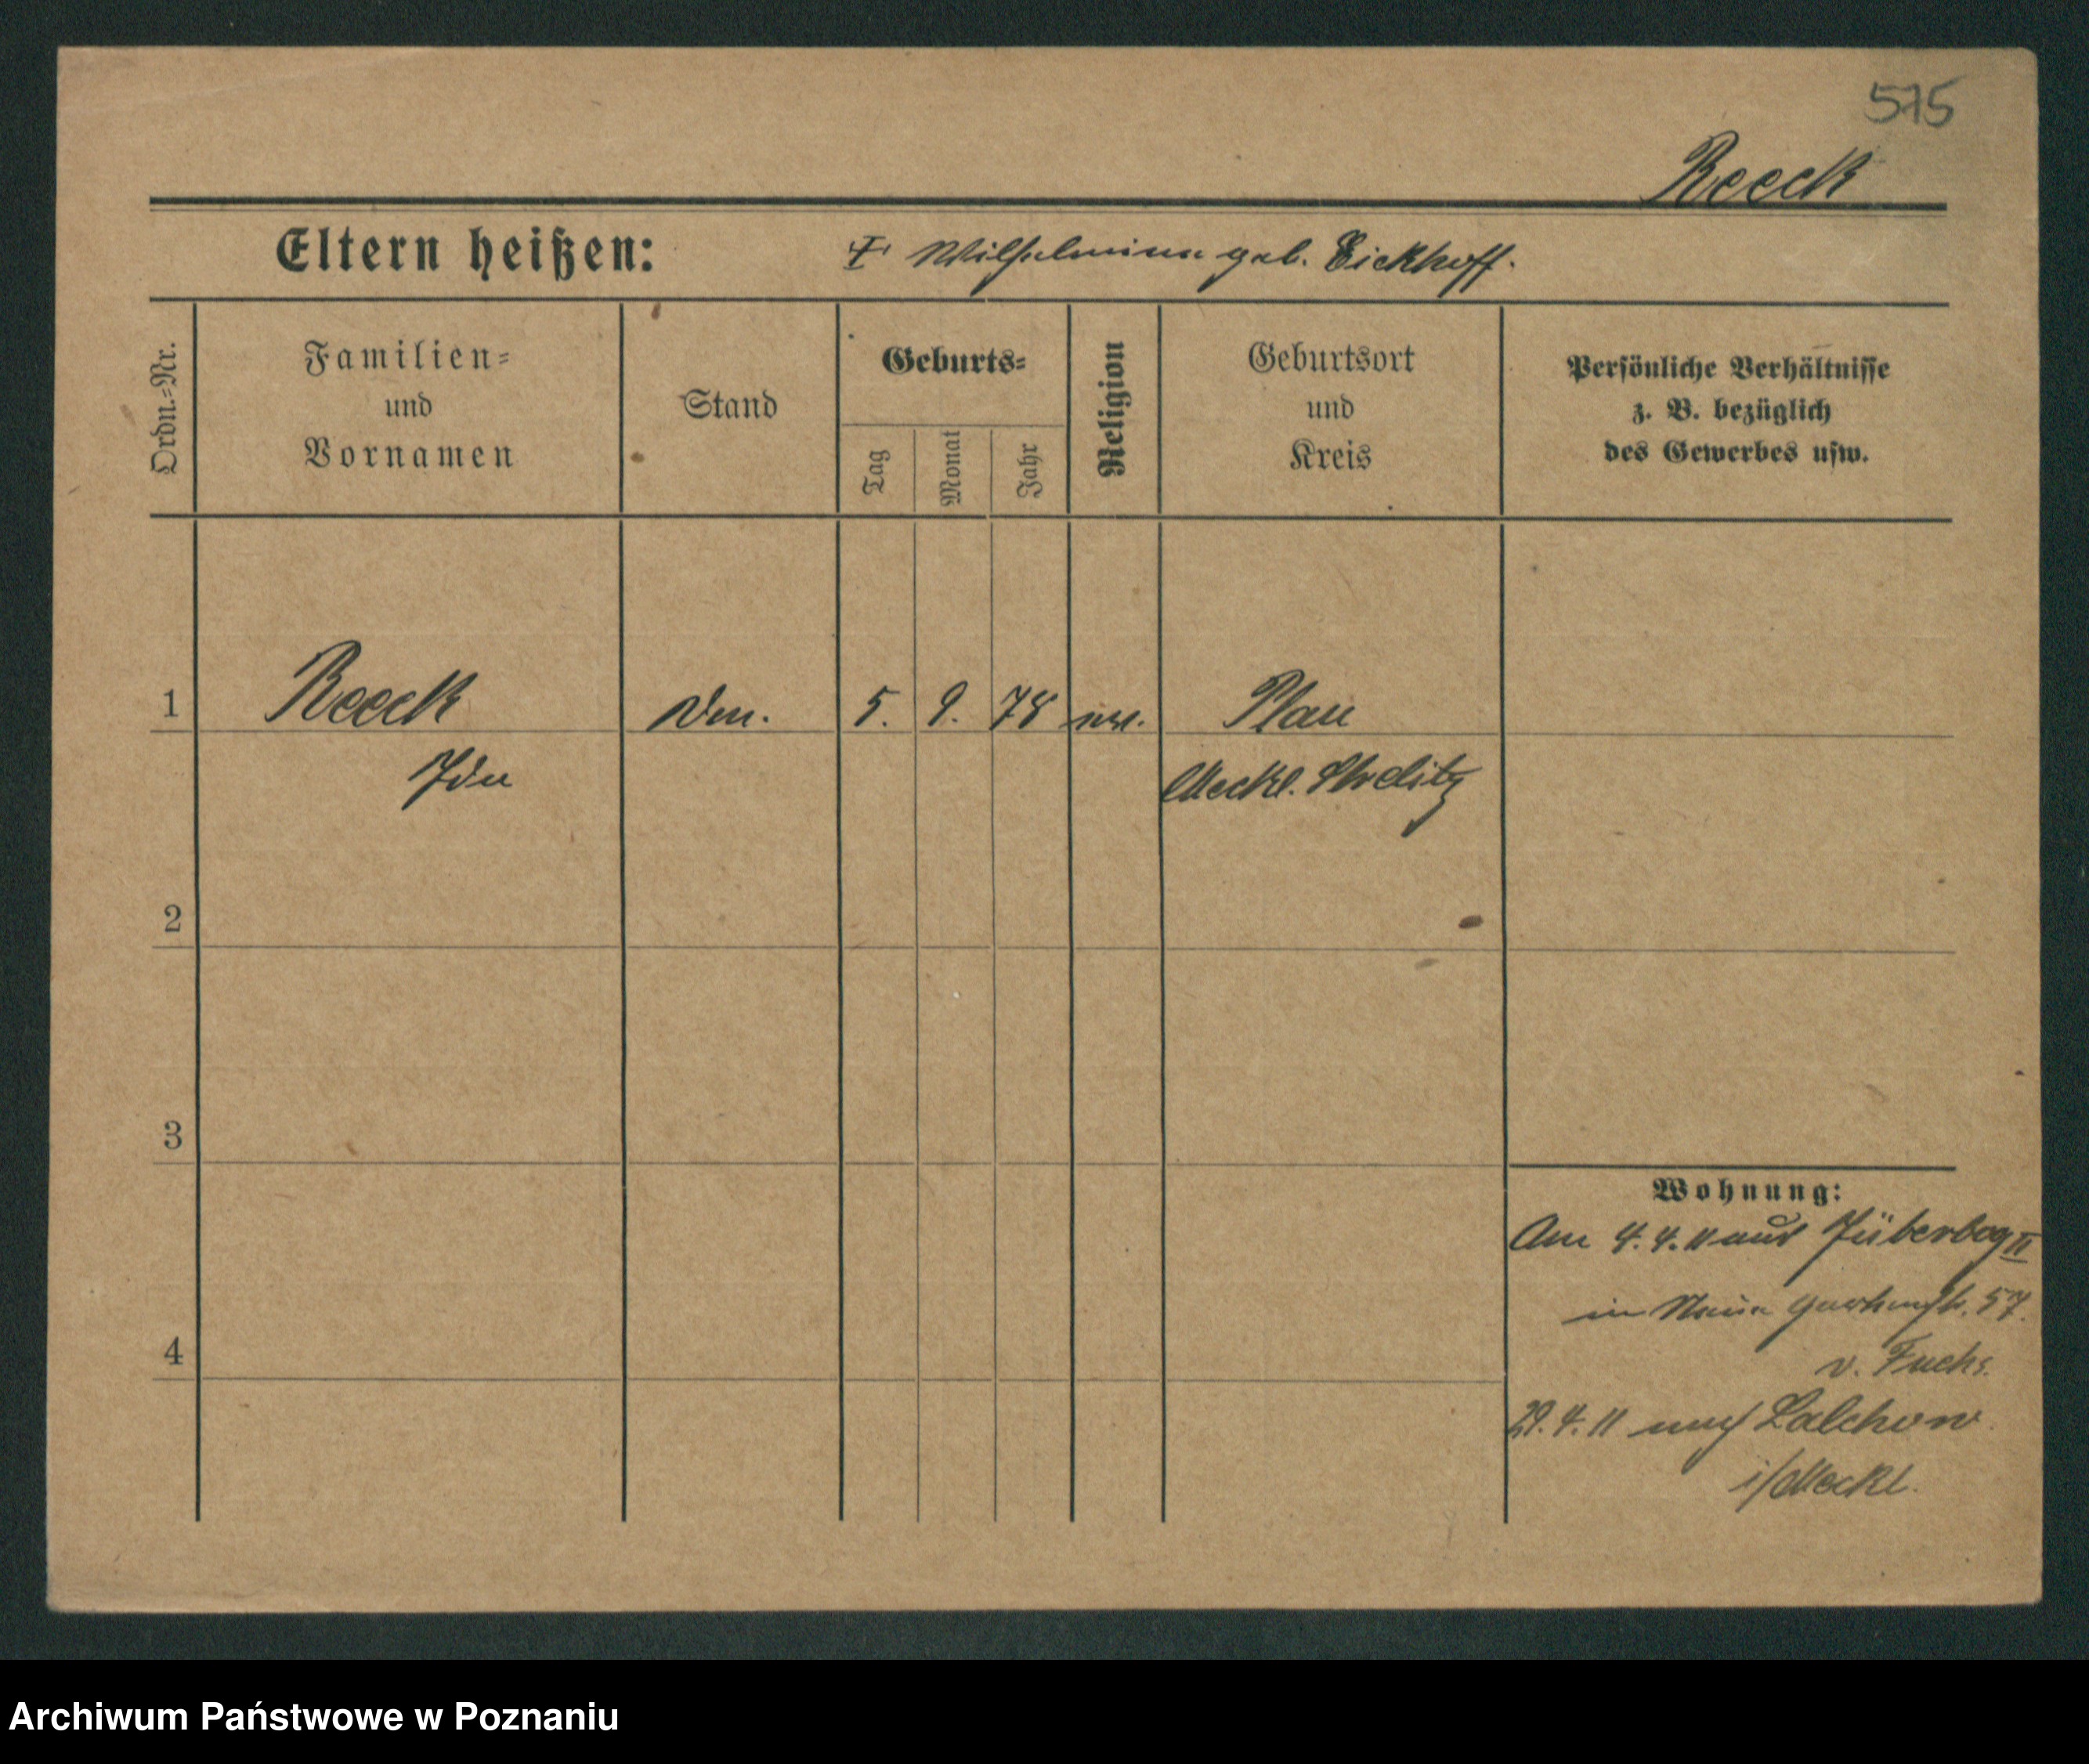 575
Reeck
Eltern heißen: F. Wilhelmine geb. Eickhoff.
Ordn.=Nr. Familien= und Vornamen Stand Geburts= Tag Monat Jahr Religion Geburtsort und Kreis Persönliche Verhältnisse z. B. bezüglich des Gewerbes usw.
1 Reeck 5. 9. 78 Plau
Ida Meckl. Strelitz
2
3
4
Wohnung:
Am 4. 4. 11 aus Jüterbog II
in Neue Gartenstr. 57.
v. Fuchs.
29. 4. 11 nach Lalchow
i/Meckl.
Archiwum Państwowe w Poznaniu